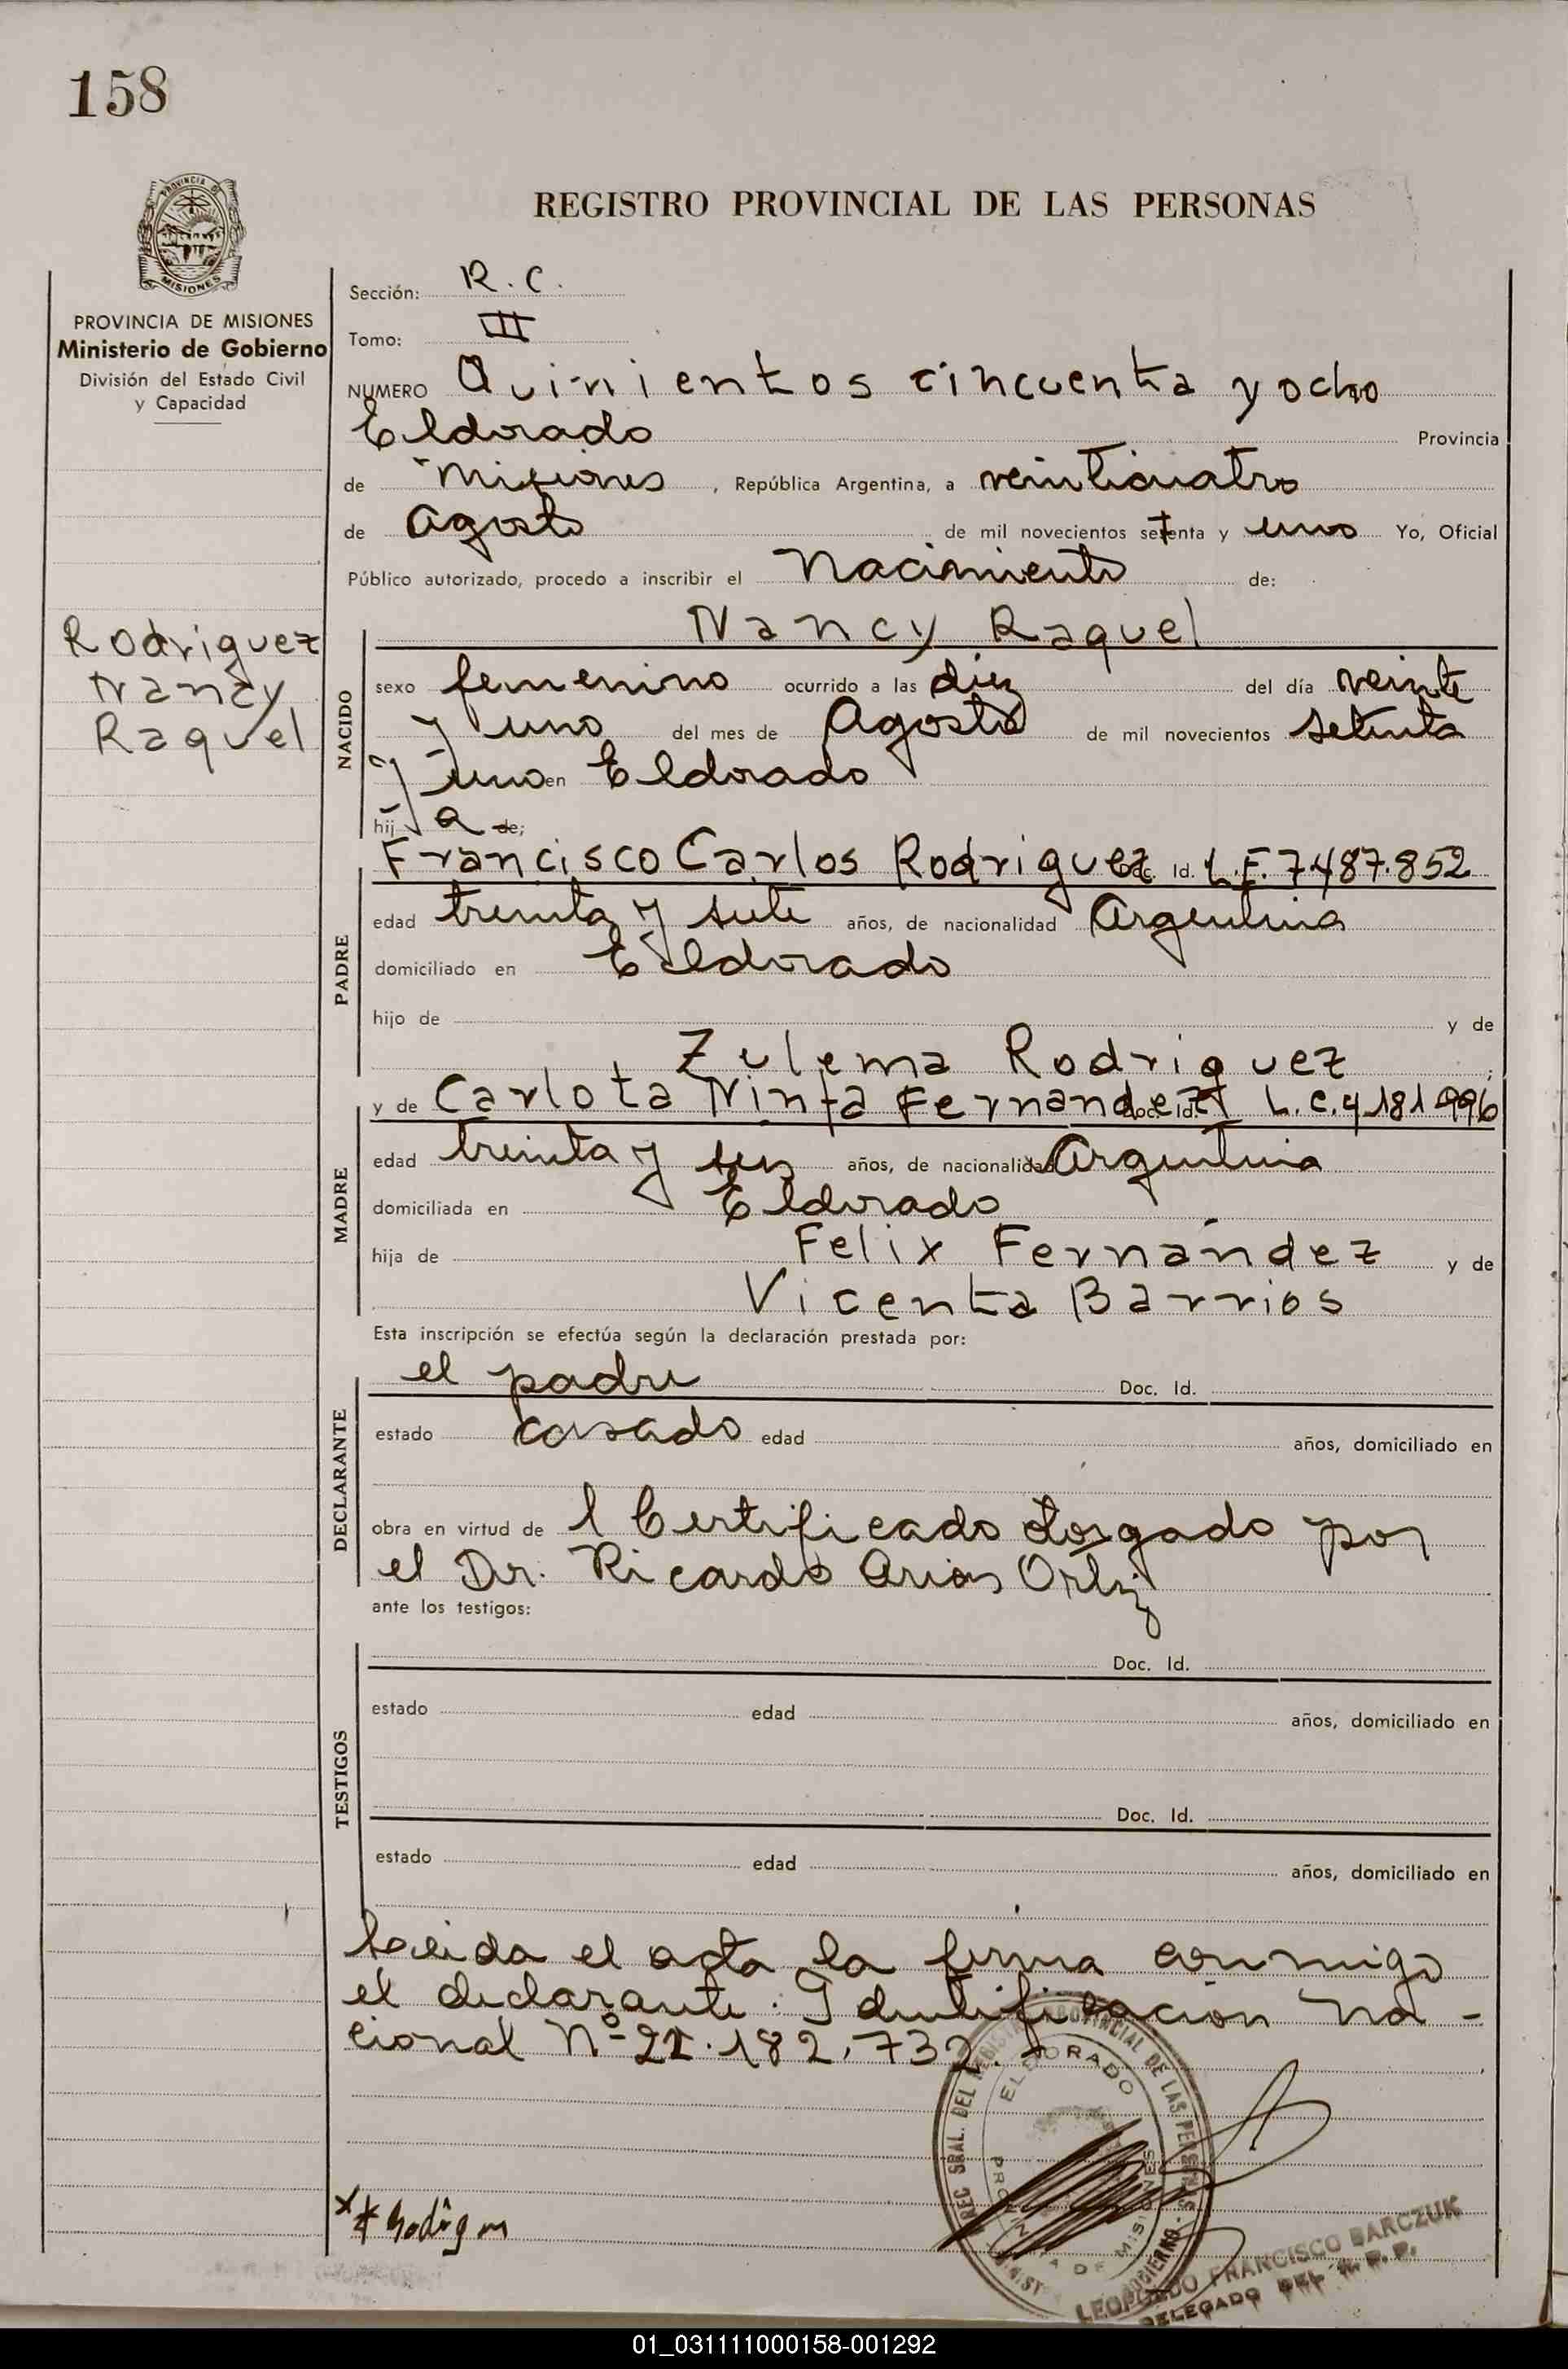 158
PROVINCIA DE
MISIONES
PROVINCIA DE MISIONES
Ministerio de Gobierno
División del Estado Civil
y Capacidad
Rodriguez
Nancy
Raquel
REGISTRO PROVINCIAL DE LAS PERSONAS
Sección: R. C.
Tomo: III
NUMERO Quinientos cincuenta y ocho
Eldorado Provincia
de Misiones, República Argentina, a veinticuatro
de Agosto de mil novecientos setenta y uno Yo, Oficial
Público autorizado, procedo a inscribir el Nacimiento de:
NACIDO
Nancy Raquel
sexo femenino ocurrido a las diez del día veinte
y uno del mes de Agosto de mil novecientos setenta
y uno en Eldorado
hij a de;
PADRE
Francisco Carlos Rodriguez Doc. Id. L.E. 7487.852
edad treinta y siete años, de nacionalidad Argentina
domiciliado en Eldorado
hijo de y de
Zulema Rodriguez;
MADRE
y de Carlota Ninfa Fernandez Doc. Id. L.C. 4181996
edad treinta y seis años, de nacionalidad Argentina
domiciliada en Eldorado
hija de Felix Fernández y de
Vicenta Barrios
Esta inscripción se efectúa según la declaración prestada por:
DECLARANTE
el padre Doc. Id.
estado casado edad años, domiciliado en
obra en virtud de l Certificado otorgado por
el Dr. Ricardo Arias Ortiz
ante los testigos:
TESTIGOS
Doc. Id.
estado edad años, domiciliado en
Doc. Id.
estado edad años, domiciliado en
Leida el acta la firma conmigo
el declarante. Identificación Na-
cional Nº 21.182.732.
REGISTRO PROVINCIAL DE LAS PERSONAS
ELDORADO
PROVINCIA DE MISIONES
LEOPOLDO FRANCISCO BARCZUK
DELEGADO DEL R.P.P.
01_031111000158-001292